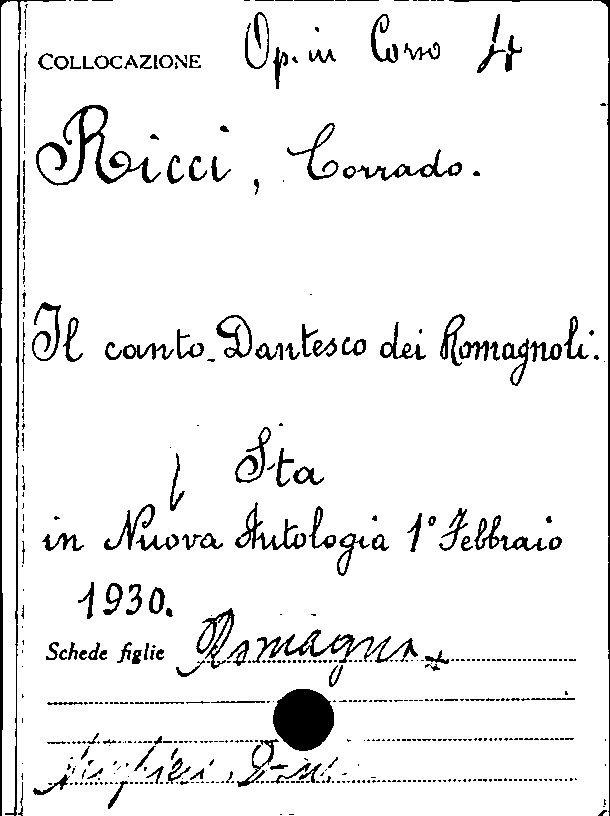 COLLOCAZIONE Op. in Corso 4
Ricci, Corrado.
Il canto Dantesco dei Romagnoli.
Sta
in Nuova Antologia 1° Febbraio
1930.
Schede figlie Romagna +
Alighieri, D